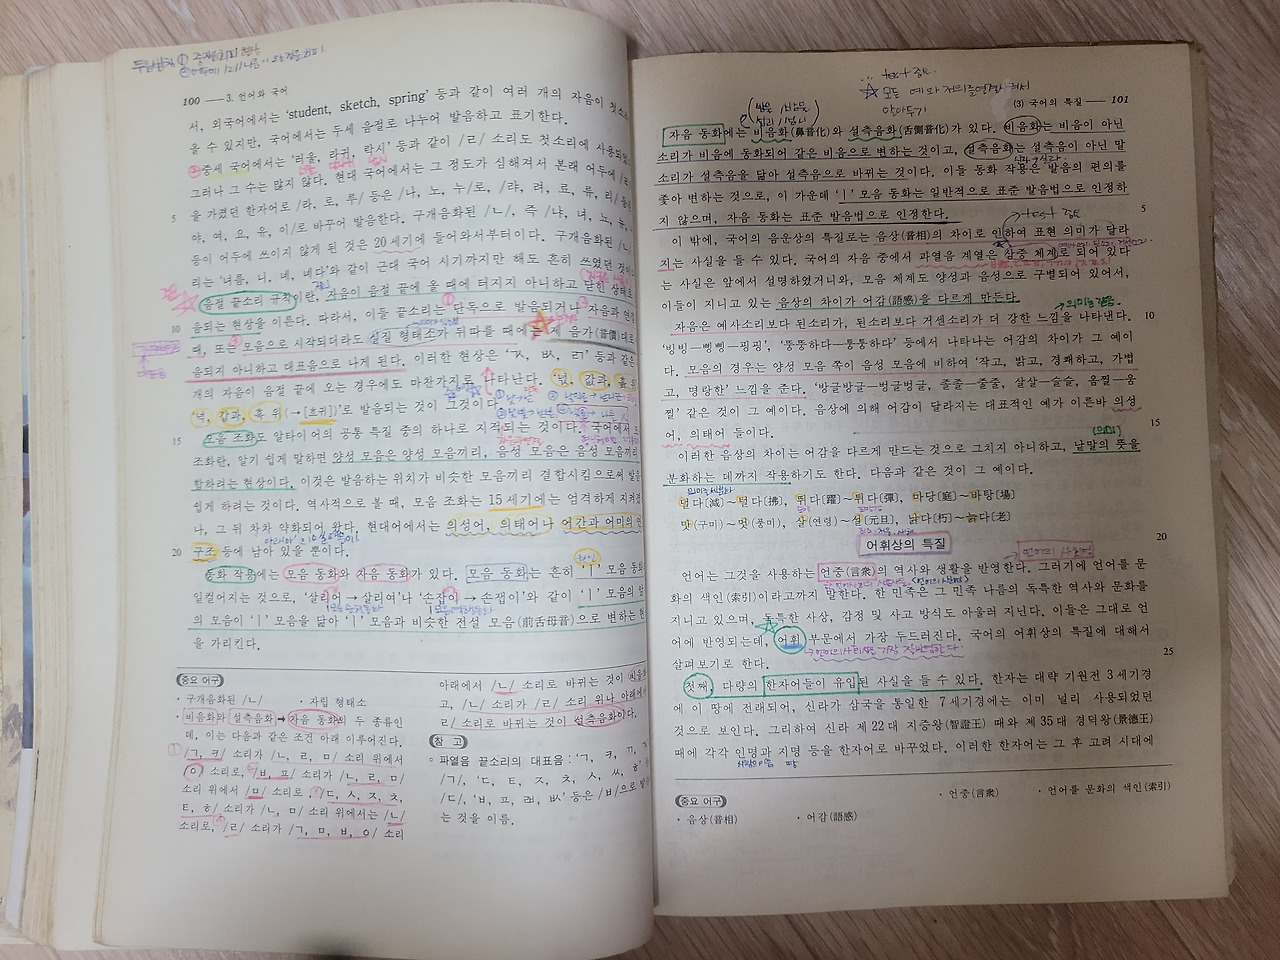 100 — 3. 언어와 국어
서, 외국어에서는 'student, sketch, spring' 등과 같이 여러 개의 자음이 첫소
올 수 있지만, 국어에서는 두세 음절로 나누어 발음하고 표기한다.
중세 국어에서는 '러울, 라귀, 락시' 등과 같이 /ㄹ/ 소리도 첫소리에 사용되었
그러나 그 수는 많지 않다. 현대 국어에서는 그 정도가 심해져서 본래 어두에 /ㄹ
5 을 가졌던 한자어로 /라, 로, 루/ 등은 /나, 노, 누/로, /랴, 려, 료, 류, 리/
야, 여, 요, 유, 이/로 바꾸어 발음한다. 구개음화된 /ㄴ/, 즉 /냐, 녀, 뇨, 뉴,
등이 어두에 쓰이지 않게 된 것은 20세기에 들어와서부터이다. 구개음화된 /ㄴ/
리는 '녀름, 니, 녜, 녜다'와 같이 근대 국어 시기까지만 해도 흔히 쓰였던 것이
음절 끝소리 규칙이란, 자음이 음절 끝에 올 때에 터지지 아니하고 닫힌 상태로
10 음되는 현상을 이른다. 따라서, 이들 끝소리는 단독으로 발음되거나 자음과 연결
때, 또는 모음으로 시작되더라도 실질 형태소가 뒤따를 때에는 제 음가(音價)대로
음되지 아니하고 대표음으로 나게 된다. 이러한 현상은 'ㄳ, ㅄ, ㄺ' 등과 같은
개의 자음이 음절 끝에 오는 경우에도 마찬가지로 나타난다. '넋, 값과, 흙 위
'넉, 갑과, 흑 위(→[흐귀])'로 발음되는 것이 그것이다.
15 모음 조화도 알타이어의 공통 특질 중의 하나로 지적되는 것이다. 국어에서 모
조화란, 알기 쉽게 말하면 양성 모음은 양성 모음끼리, 음성 모음은 음성 모음끼리
합하려는 현상이다. 이것은 발음하는 위치가 비슷한 모음끼리 결합시킴으로써 발음
쉽게 하려는 것이다. 역사적으로 볼 때, 모음 조화는 15세기에는 엄격하게 지켜졌
나, 그 뒤 차차 약화되어 왔다. 현대어에서는 의성어, 의태어나 어간과 어미의 연
20 구조 등에 남아 있을 뿐이다.
동화 작용에는 모음 동화와 자음 동화가 있다. 모음 동화는 흔히 'ㅣ' 모음 동화
일컬어지는 것으로, '살리어 → 살리여'나 '손잡이 → 손잽이'와 같이 'ㅣ' 모음의 앞
의 모음이 'ㅣ' 모음을 닮아 'ㅣ' 모음과 비슷한 전설 모음(前舌母音)으로 변하는 현
을 가리킨다.
중요 어구
· 구개음화된 /ㄴ/ · 자립 형태소
· 비음화와 설측음화 → 자음 동화의 두 종류인
데, 이는 다음과 같은 조건 아래 이루어진다.
/ㄱ, ㅋ/ 소리가 /ㄴ, ㄹ, ㅁ/ 소리 위에서
/ㅇ/ 소리로, /ㅂ, ㅍ/ 소리가 /ㄴ, ㄹ, ㅁ/
소리 위에서 /ㅁ/ 소리로, /ㄷ, ㅅ, ㅈ, ㅊ,
ㅌ, ㅎ/ 소리가 /ㄴ, ㅁ/ 소리 위에서는 /ㄴ/
소리로, /ㄹ/ 소리가 /ㄱ, ㅁ, ㅂ, ㅇ/ 소리
아래에서 /ㄴ/ 소리로 바뀌는 것이 비음화
고, /ㄴ/ 소리가 /ㄹ/ 소리 위나 아래에서
ㄹ/ 소리로 바뀌는 것이 설측음화이다.
참 고
◦ 파열음 끝소리의 대표음 : 'ㄱ, ㅋ, ㄲ,
/ㄱ/, 'ㄷ, ㅌ, ㅈ, ㅊ, ㅅ, ㅆ, ㅎ'
/ㄷ/, 'ㅂ, ㅍ, ㄼ, ㅄ' 등은 /ㅂ/으로
는 것을 이름.
test 중요
(3) 국어의 특질 — 101
자음 동화에는 비음화(鼻音化)와 설측음화(舌側音化)가 있다. 비음화는 비음이 아닌
소리가 비음에 동화되어 같은 비음으로 변하는 것이고, 설측음화는 설측음이 아닌 말
소리가 설측음을 닮아 설측음으로 바뀌는 것이다. 이들 동화 작용은 발음의 편의를
좇아 변하는 것으로, 이 가운데 'ㅣ' 모음 동화는 일반적으로 표준 발음법으로 인정하
지 않으며, 자음 동화는 표준 발음법으로 인정한다. 5
test 중요
이 밖에, 국어의 음운상의 특질로는 음상(音相)의 차이로 인하여 표현 의미가 달라
지는 사실을 들 수 있다. 국어의 자음 중에서 파열음 계열은 삼중 체계로 되어 있다
는 사실은 앞에서 설명하였거니와, 모음 체계도 양성과 음성으로 구별되어 있어서,
이들이 지니고 있는 음상의 차이가 어감(語感)을 다르게 만든다.
자음은 예사소리보다 된소리가, 된소리보다 거센소리가 더 강한 느낌을 나타낸다. 10
'빙빙—삥삥—핑핑', '뚱뚱하다—퉁퉁하다' 등에서 나타나는 어감의 차이가 그 예이
다. 모음의 경우는 양성 모음 쪽이 음성 모음에 비하여 '작고, 밝고, 경쾌하고, 가볍
고, 명랑한' 느낌을 준다. '방글방글—벙글벙글, 졸졸—줄줄, 살살—슬슬, 옴찔—움
찔' 같은 것이 그 예이다. 음상에 의해 어감이 달라지는 대표적인 예가 이른바 의성
어, 의태어 들이다. 15
이러한 음상의 차이는 어감을 다르게 만드는 것으로 그치지 아니하고, 낱말의 뜻을
분화하는 데까지 작용하기도 한다. 다음과 같은 것이 그 예이다.
덜다[減]~털다[拂], 뛰다[躍]~튀다[彈], 마당[庭]~바탕[場]
맛(구미)~멋(풍미), 살(연령)~설[元旦], 낡다[朽]~늙다[老]
어휘상의 특질 20
언어는 그것을 사용하는 언중(言衆)의 역사와 생활을 반영한다. 그러기에 언어를 문
화의 색인(索引)이라고까지 말한다. 한 민족은 그 민족 나름의 독특한 역사와 문화를
지니고 있으며, 독특한 사상, 감정 및 사고 방식도 아울러 지닌다. 이들은 그대로 언
어에 반영되는데, 어휘 부문에서 가장 두드러진다. 국어의 어휘상의 특질에 대해서
살펴보기로 한다. 25
첫째, 다량의 한자어들이 유입된 사실을 들 수 있다. 한자는 대략 기원전 3세기경
에 이 땅에 전래되어, 신라가 삼국을 통일한 7세기경에는 이미 널리 사용되었던
것으로 보인다. 그리하여 신라 제 22대 지증왕(智證王) 때와 제 35대 경덕왕(景德王)
때에 각각 인명과 지명 등을 한자어로 바꾸었다. 이러한 한자어는 그 후 고려 시대에
중요 어구
· 언중(言衆) · 언어를 문화의 색인(索引)
· 음상(音相) · 어감(語感)